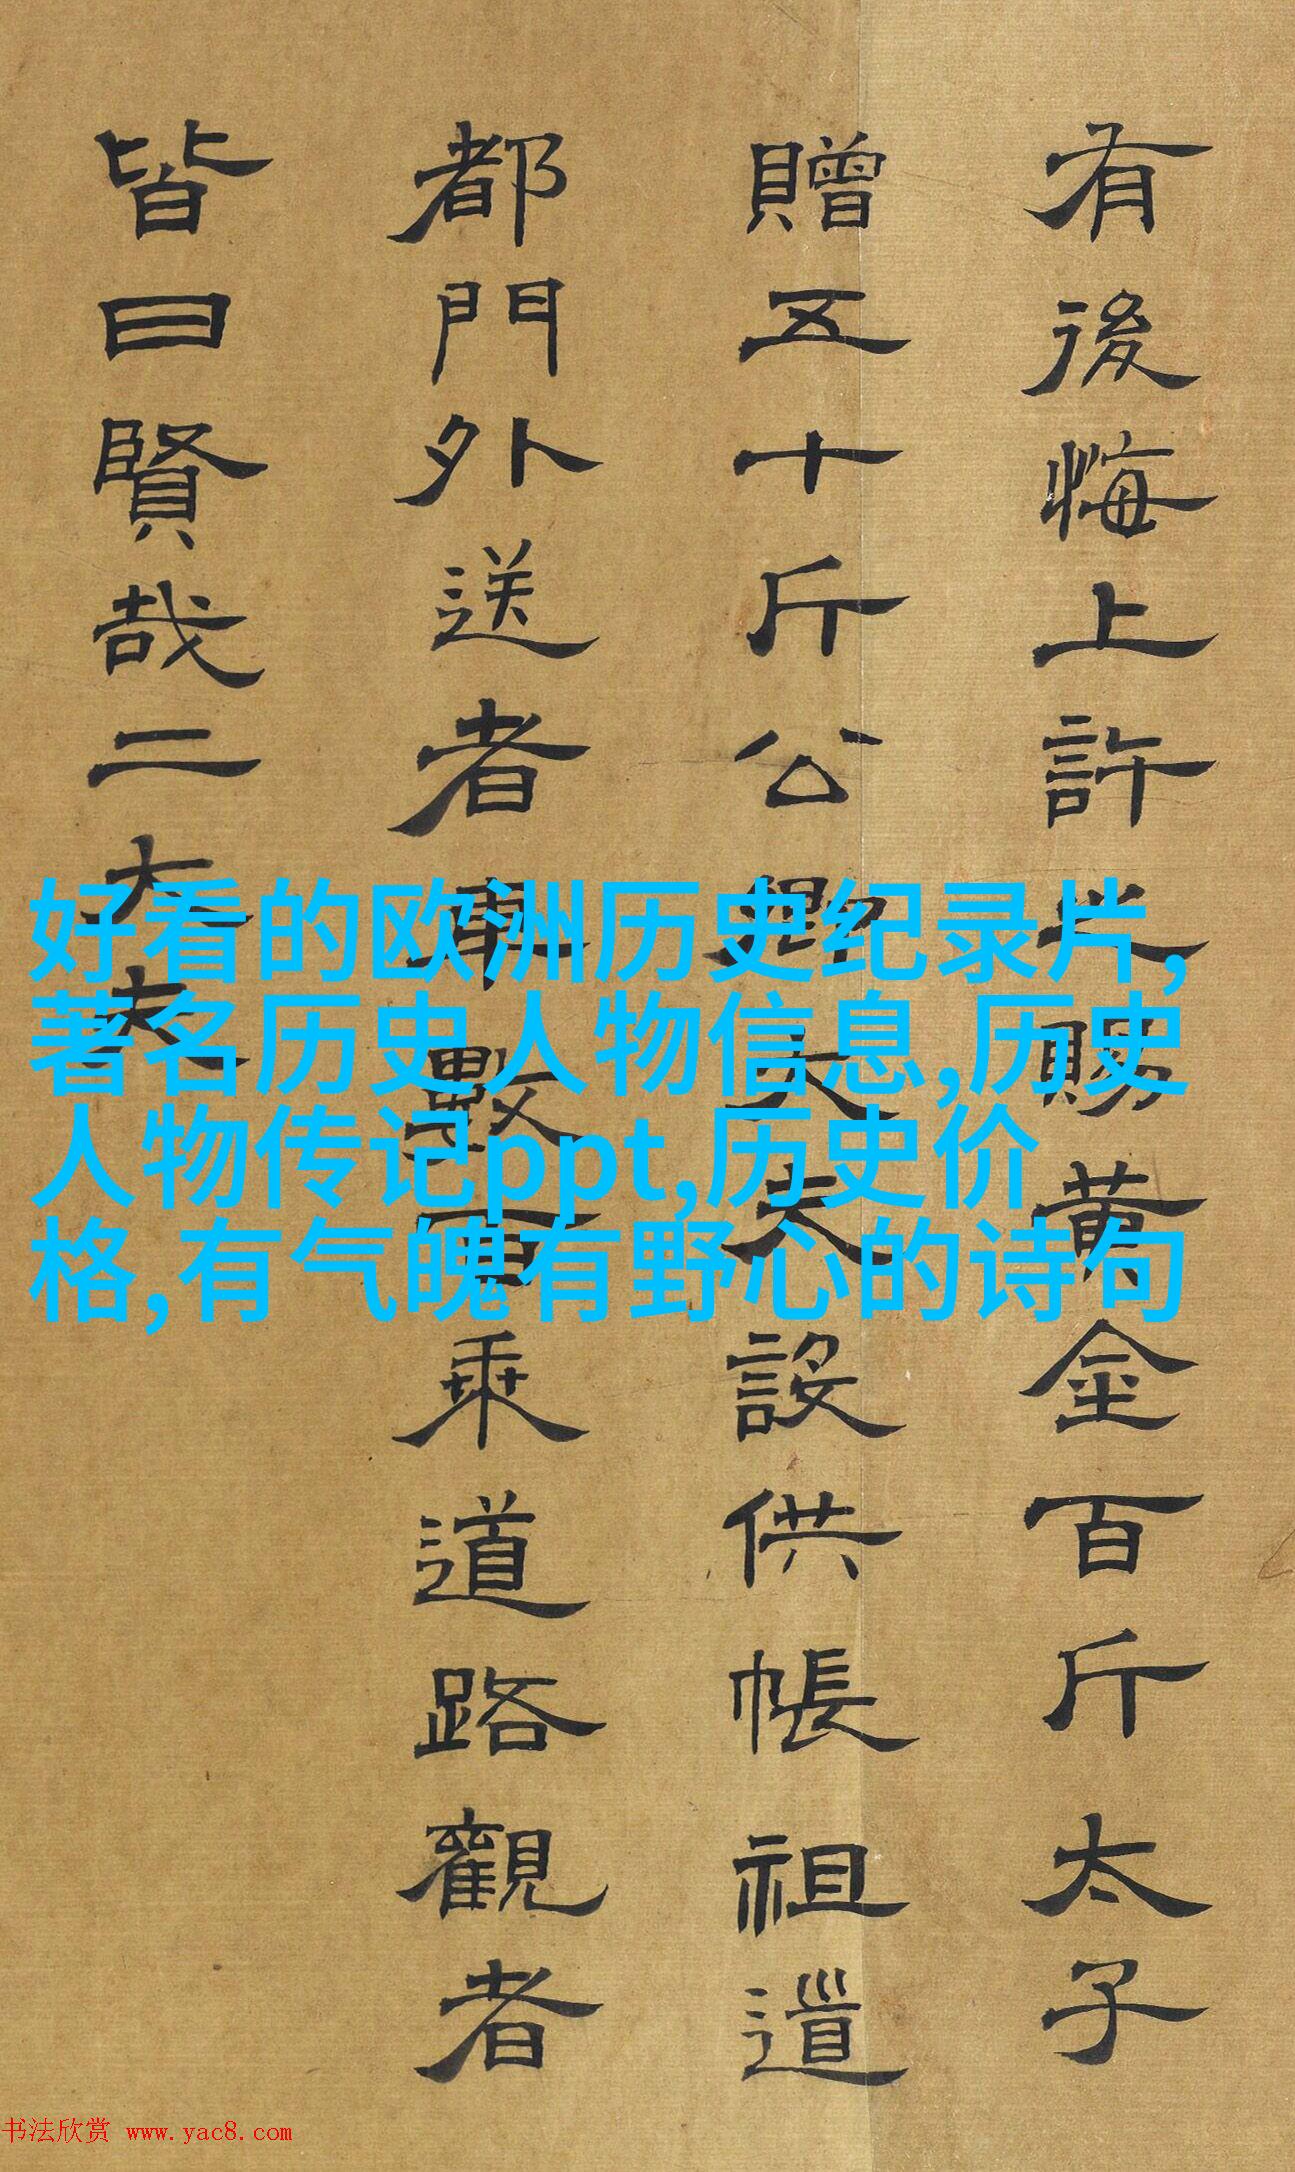 有後悔上許之賜黃金百斤太子
贈五十斤公卿大夫設供帳祖道
都門外送者車數百乘道路觀者
皆曰賢哉二大夫
好看的欧洲历史纪录片,
著名历史人物信息,历史
人物传记ppt,历史价
格,有气魄有野心的诗句
书法欣赏 www.yac8.com